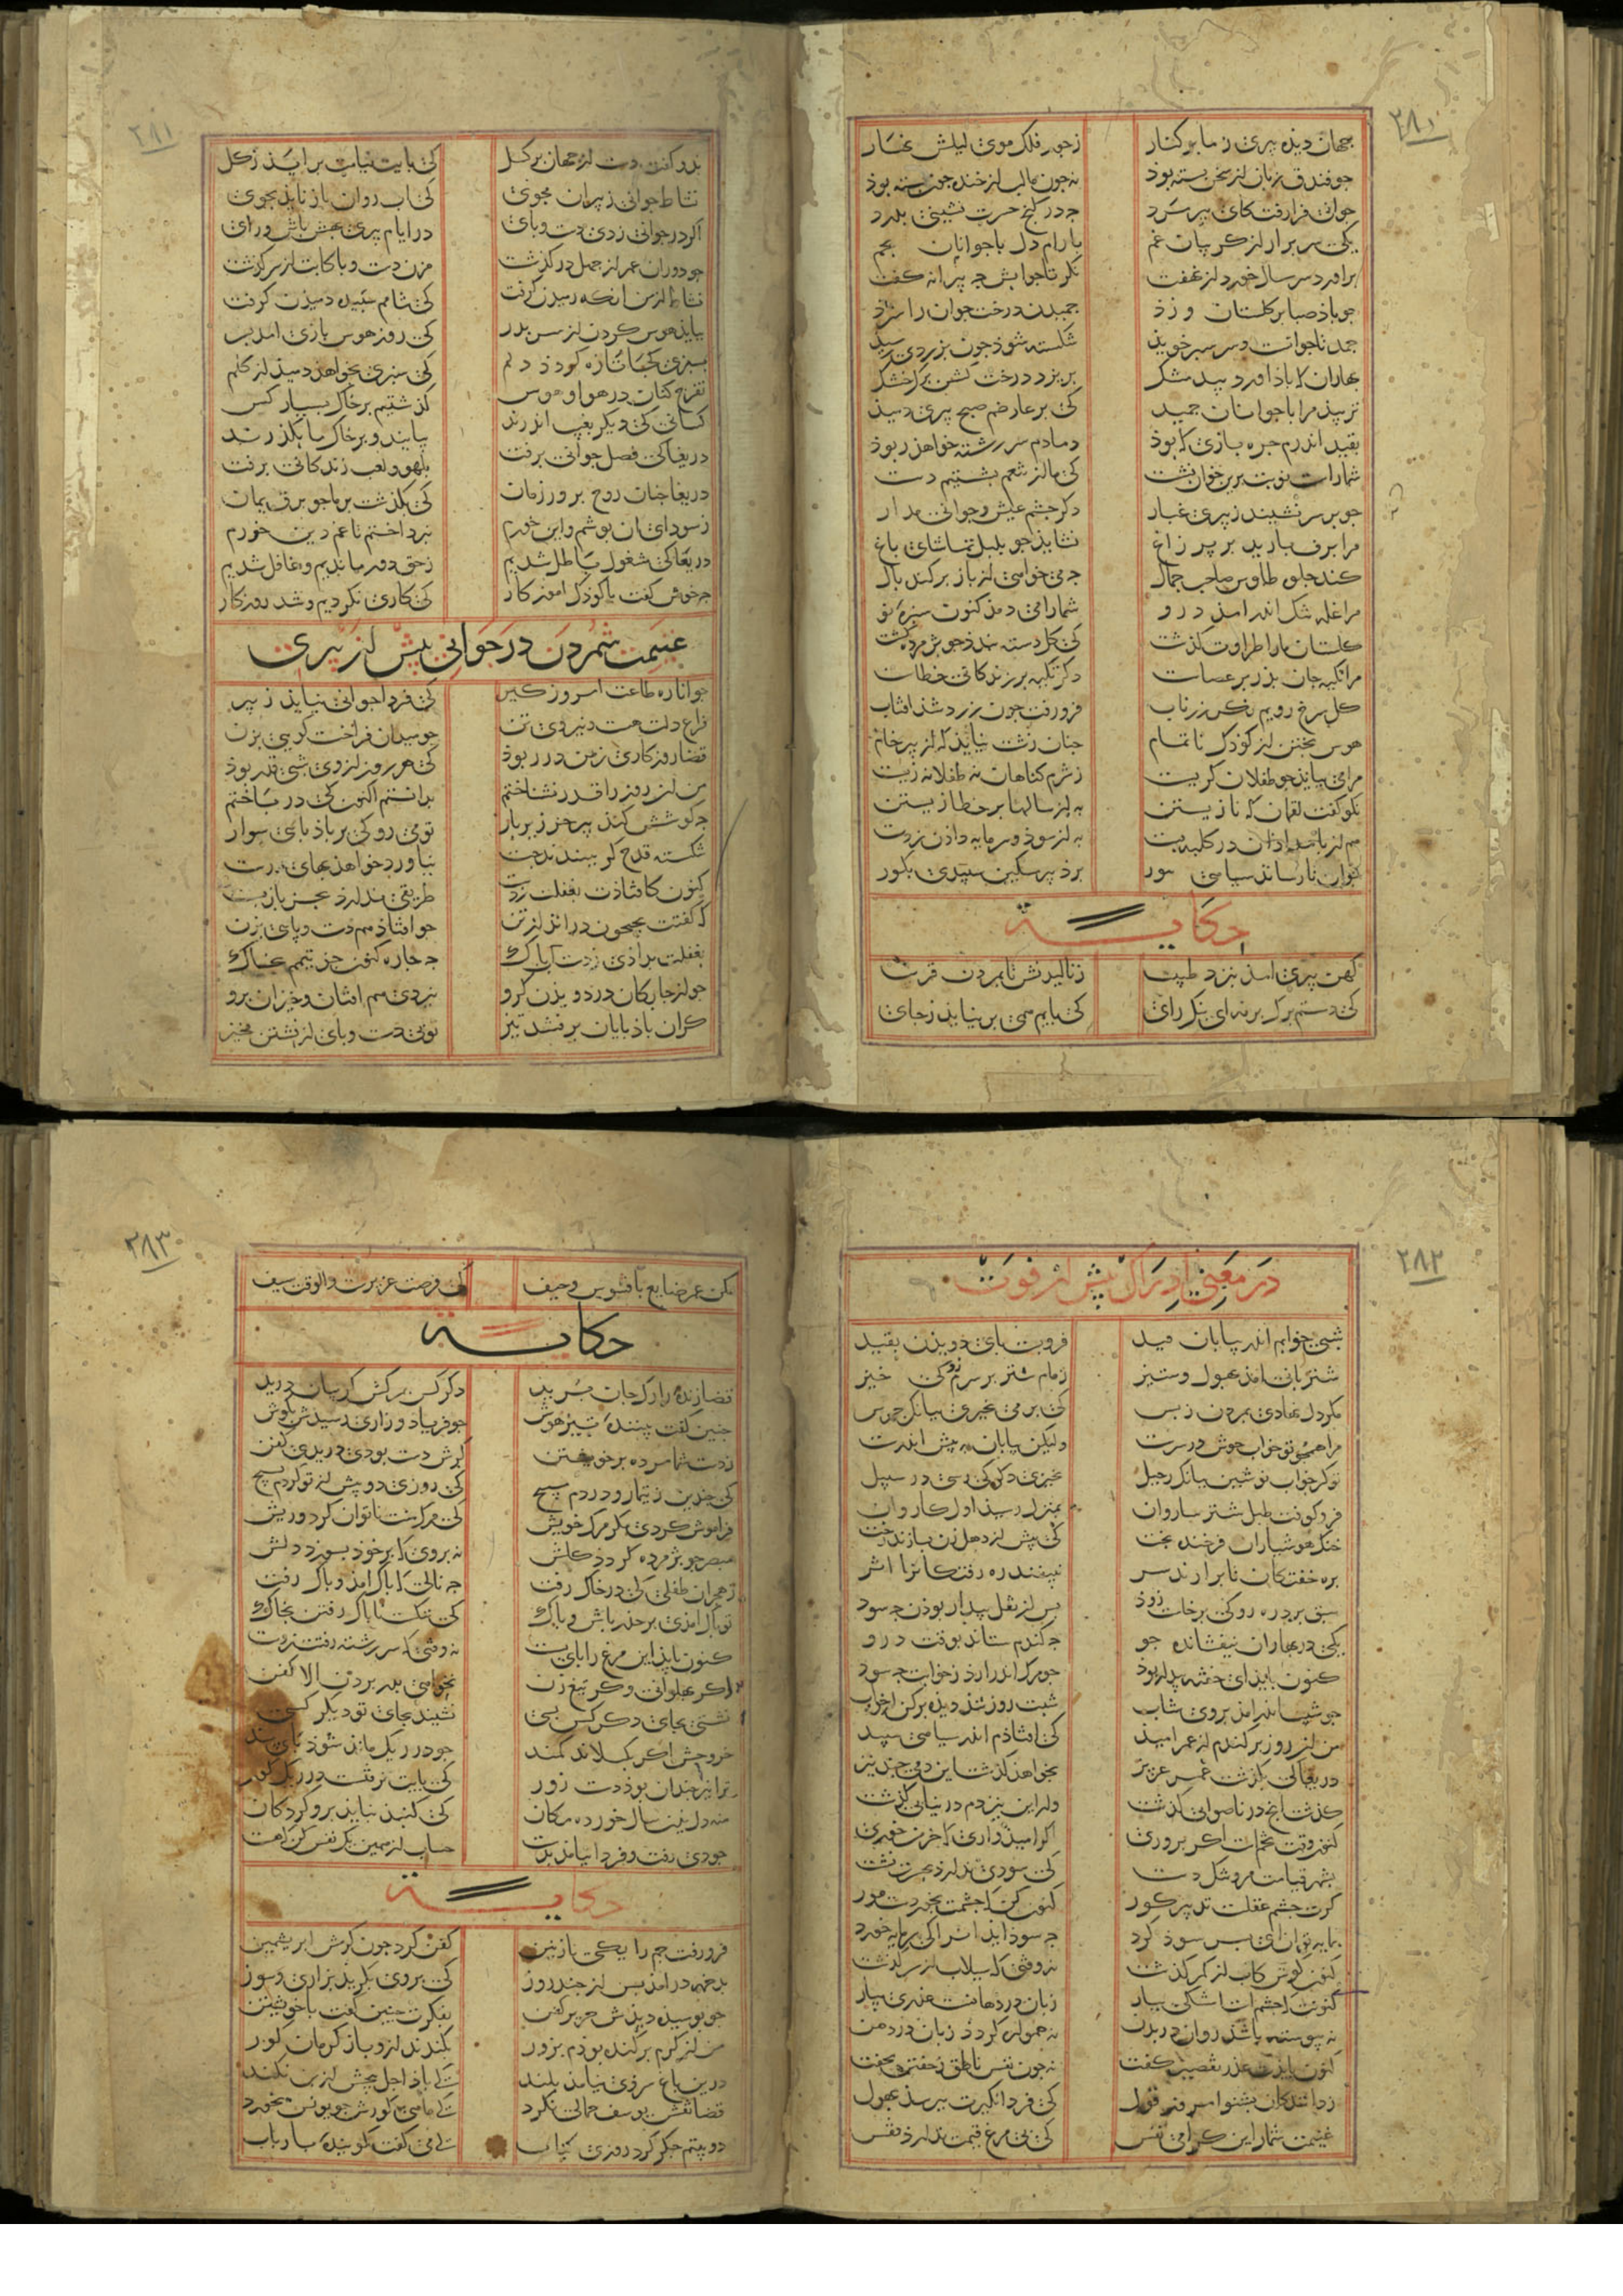 ۲۸۰
جهان دیذه پیری ز ما بر کنار ز جور فلک موی لیلش نهار
جو فندق زبان از سخن بسته بوذ نه جون ما لب از خنده جون بسته بوذ
جوانی فرا رفت کای پیر مرد جه در کنج حسرت نشینی بدرد
یکی سر برار از کریبان غم بارام دل با جوانان بجم
براورد سر سال خورد از نهفت نکر تا جوابش جه پیرانه کفت
جو باذ صبا بر کلستان وزذ جمیدن درخت جوان را سزذ
جمد تا جوانست و سر سبز خوید شکسته شوذ جون بزردی رسید
بهاران که باذ اورد بید مشک بریزد درخت کشن برک خشک
نزیبد مرا با جوانان جمید کی بر عارضم صبح پیری دمید
بقید اندرم جره بازی که بوذ دمادم سر رشته خواهذ ربوذ
شما راست نوبت برین خوان نشست کی ما از تنعم بشستیم دست
جو بر سر نشیند ز پیری غبار دکر جشم عیش و جوانی مدار
مرا برف بارید بر پر زاغ نشایذ جو بلبل تماشای باغ
کند جلوه طاوس صاحب جمال جه می خواهی از باز برکنده بال
مرا غله تنک اندر امذ درو شما را می دمذ کنون سبزه نو
کلستان ما را طراوت کذشت کی کل دسته بندذ جو بژمرده کشت
مرا تکیه جان بذر بر عصاست دکر تکیه بر زندکانی خطاست
کل سرخ رویم نکر زر ناب فرو رفت جون زرد شذ افتاب
هوس بختن از کوذک ناتمام جنان زشت نیایذ که از پیر خام
مرا می ببایذ جو طفلان کریست ز شرم کناهان نه طفلانه زیست
نکو کفت لقمان که نازیستن به از سالها بر خطا زیستن
هم از بامدادان در کلبه بست به از سوذ و سرمایه داذن ز دست
جوان تا رساند سیاهی بنور برذ پیر مسکین سپیدی بکور
حکایة
کهن پیری امذ بنزد طبیب ز نالیدنش تا بمردن قریب
کی دستم برک برنه ای نیک رای کی پایم همی برنیایذ ز جای
۲۸۱
بدو کفت دست از جهان برکسل کی پایت نیاید برایذ ز کل
نشاط جوانی ز پیران مجوی کی اب روان باز نایذ بجوی
اکر در جوانی زدی دست و پای در ایام پیری بهش باش و رای
جو دوران عمر از جهل در کذشت مزن دست و پا کابت از سر کذشت
نشاط از من انکه رمیدن کرفت کی شامم سپیده دمیدن کرفت
ببایذ هوس کردن از سر بدر کی روز هوس بازی امد بسر
بسبزی کجا تازه کردذ دلم کی سبزی بخواهذ دمیذ از کلم
تفرج کنان در هوا و هوس کذشتیم بر خاک بسیار کس
کسانی کی دیکر بغیب اندرند بیایند و بر خاک ما بکذرند
دریغا کی فصل جوانی برفت بلهو و لعب زندکانی برفت
دریغا جنان روح برور زمان کی بکذشت بر ما جو برق یمان
ز سودای ان بوشم و این خورم نبرداختم تا غم دین خورم
دریغا کی مشغول باطل شدیم ز حق دور ماندیم و غافل شدیم
جه خوش کفت با کوذک اموزکار کی کاری نکردیم و شد روزکار
غنیمت شمردن در جوانی پیش از پیری
جوانا ره طاعت امروز کیر کی فردا جوانی نیاید ز پیر
فراغ دلت هست و نیروی تن جو میدان فراخست کویی بزن
قضا روزکاری ز من در ربوذ کی هر روز از وی شبی قدر بوذ
من ان روز را قدر نشناختم بدانستم اکنون کی در باختم
جه کوشش کند پیر خر زیر بار تو می رو کی بر باذ بای سوار
شکسته قدح کر ببندند جست نیاورد خواهد بهای درست
کنون کافتاذت بغفلت ز دست طریقی ندارذ بجز بازبست
که کفتت بجیحون در انداز تن جو افتاذ هم دست و پای بزن
بغفلت بدادی ز دست اب پاک جه جاره کنون جز تیمم بخاک
جو از جابکان در دویدن کرو نبردی هم افتان و خیزان برو
کر ان باذ بایان برفتند تیز تو بی دست و پای از نشستن بخیز
۲۸۲
در معنی ادراک پیش از فوت
شبی خوابم اندر بیابان فید فرو بست پای دویدن بقید
شتربانی امذ بهول و ستیز زمام شتر بر سرم زد کی خیز
مکر دل نهادی بمردن ز بس کی بر می نخیزی ببانک جرس
مرا همجو تو خواب خوش در سرست ولیکن بیابان به پیش اندرست
تو کز خواب نوشین ببانک رحیل نخیزی دکر کی رسی در سبیل
فرو کوفت طبل شتر ساروان بمنزل رسید اول کاروان
خنک هوشیاران فرخنده بخت کی پیش از دهل زن بسازند رخت
بره خفتکان تا برارند سر نبینند ره رفتکان را اثر
سبق برد ره رو کی برخاست زوذ پس از نقل بیدار بوذن جه سود
یکی در بهاران بیفشانده جو جه کندم ستاند بوقت درو
کنون بایذ ای خفته بیدار بوذ جو مرک اندر ارذ ز خوابت جه سود
جو شیبت اندر امد بروی شباب شبت روز شد دیده برکن ز خواب
من ان روز برکندم از عمر امیذ کی افتاذم اندر سیاهی سپید
دریغا کی بکذشت عمر عزیز بخواهذ کذشت این دمی جند نیز
کذشت انج در ناصوابی کذشت ور این نیز هم در نیابی کذشت
کنون وقت تخمست اکر بروری اکر امیذواری که خرمن بری
بشهر قیامت مرو تنک دست کی سودی ندارذ بحسرت نشست
کرت جشم عقلست تدبیر کور کنون کن که جشمت نخوردست مور
بمایه توان ای پسر سوذ کرد جه سوذ افتد انرا کی سرمایه خورد
کنون کوش کاب از کمر کذشت نه وقتی که سیلاب از سر کذشت
کنونت که جشم است اشکی ببار زبان در دهانست عذری بیار
نه پیوسته باشذ روان در بدن نه همواره کردد زبان در دهن
کنون بایدت عذر تقصیر کفت نه جون نفس ناطق ز کفتن بخفت
ز دانندکان بشنو امروز قول کی فردا نکیرت بپرسذ بهول
غنیمت شمار این کرامی نفس کی بی مرغ قیمت ندارذ قفس
۲۸۳
مکن عمر ضایع بافسوس و حیف کی فرصت عزیزست و الوقت سیف
حکایة
قضا زنده را رک جان برید دکر کس بمرکش کریبان درید
جنین کفت بیننده تیز هوش جو فریاد و زاری رسیدش بکوش
ز دست شما مرده بر خویشتن کرش دست بودی دریدی کفن
کی جندین ز تیمار و دردم مپیچ کی روزی دو پیش از تو کردم بسیج
فراموش کردی مکر مرک خویش کی مرک منت ناتوان کرد و ریش
مبصر جو بر مرده کرد ذ کلش نه بر وی که بر خوذ بسوزد دلش
ز هجران طفلی کی در خاک رفت جه نالی که باک امذ و باک رفت
تو باک امذی بر حذر باش و باک کی ننکست ناباک رفتن بخاک
کنون باید این مرغ را بای بست نه وقتی که سر رشته رفتت ز دست
اکر بهلوانی و کر تیغ زن نخواهی بدر بردن الا کفن
نشستی بجای دکر کس بسی نشیند بجای تو دیکر کسی
خر وحش اکر بکسلاند کمند جو در ریک ماند شوذ پای بند
ترا نیز جندان بوذ دست زور کی پایت نرفتست در ریک کور
منه دل برین سال خورده مکان کی کنبذ نپایذ برو کردکان
جو دی رفت و فردا نیامد بدست حساب از همین یک نفس کن که هست
حکایة
فرو رفت جم را یکی نازنین کفن کرد جون کرمش ابریشمین
بدخمه در امذ پس از جند روز کی بر وی بکرید بزاری و سوز
جو بوسیده دیدش حریر کفن بفکرت جنین کفت با خویشتن
من از کرم برکنده بودم بزور بکندند ازو باز کرمان کور
درین باغ سروی نیامد بلند کی باد اجل بیخش از بن نکند
قضا نقش یوسف جمالی نکرد کی ماهی کورش جو یونس نخورد
دو بیتم جکر کرد روزی کباب کی می کفت کوینده با رباب